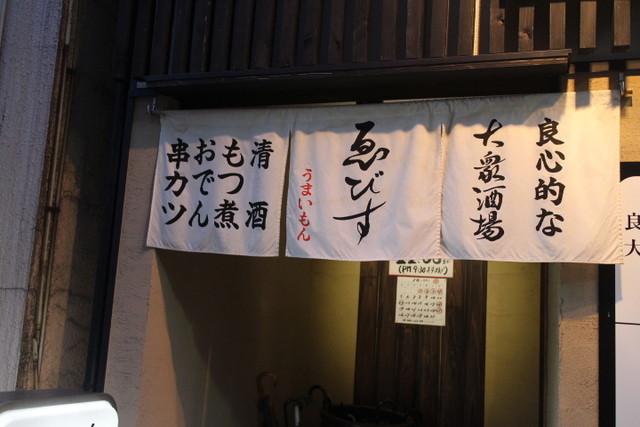 良心的な
大衆酒場
ゑびす
うまいもん
清酒
もつ煮
おでん
串カツ
良
大